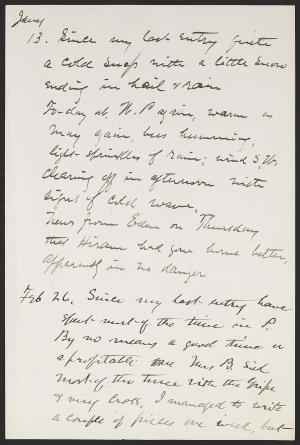 Jany
13. Since my last entry quite
a cold snap with a little snow
ending in hail & rain
To-day at W. P again, warm as
May again, bees humming,
light sprinkles of rain; wind S.W.
Clearing off in afternoon with
signs of cold wave.
News from Eden on Thursday
that Hiram had gone home better,
apparently in no danger
Feb 26. Since my last entry have
spent most of the time in P.
By no means a good time or
a profitable one Mrs B. sick
most of the time with the grippe
& very cross. I managed to write
a couple of pieces